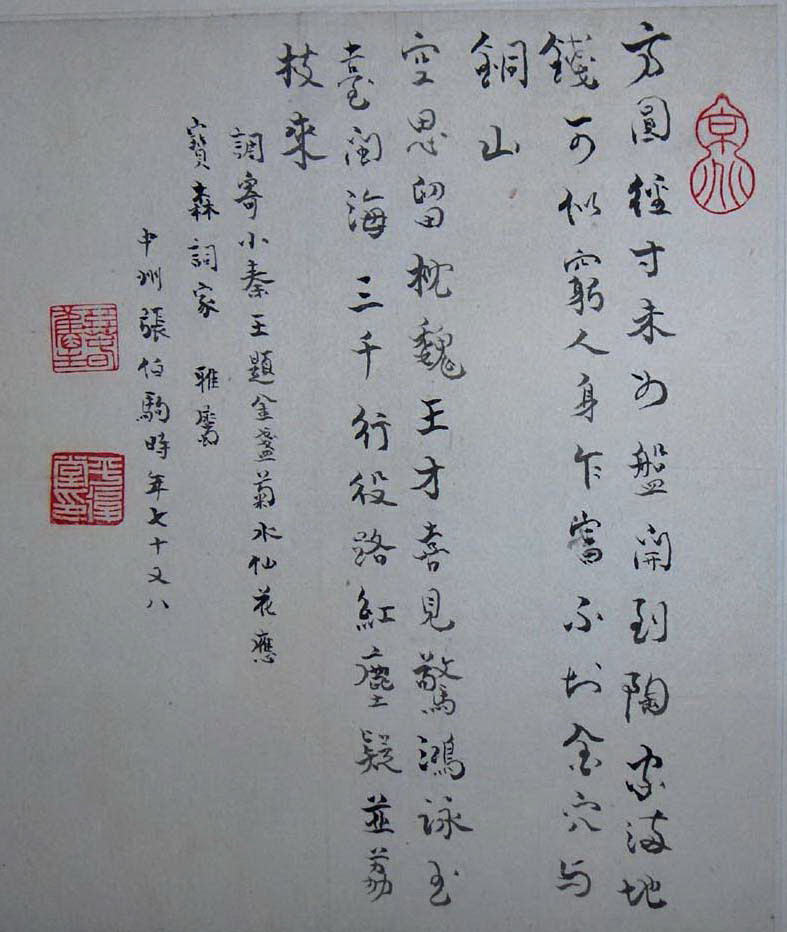 方圓徑寸未為盤開到陶家滿地
錢可似窮人身乍富不求金穴与
銅山
空思留枕魏王才喜見驚鴻詠玉
臺閩海三千行役路紅塵疑並荔
枝來
調寄小秦王題金盞菊水仙花應
寶森詞家 雅屬
中州張伯駒時年七十又八
京兆
平復堂印